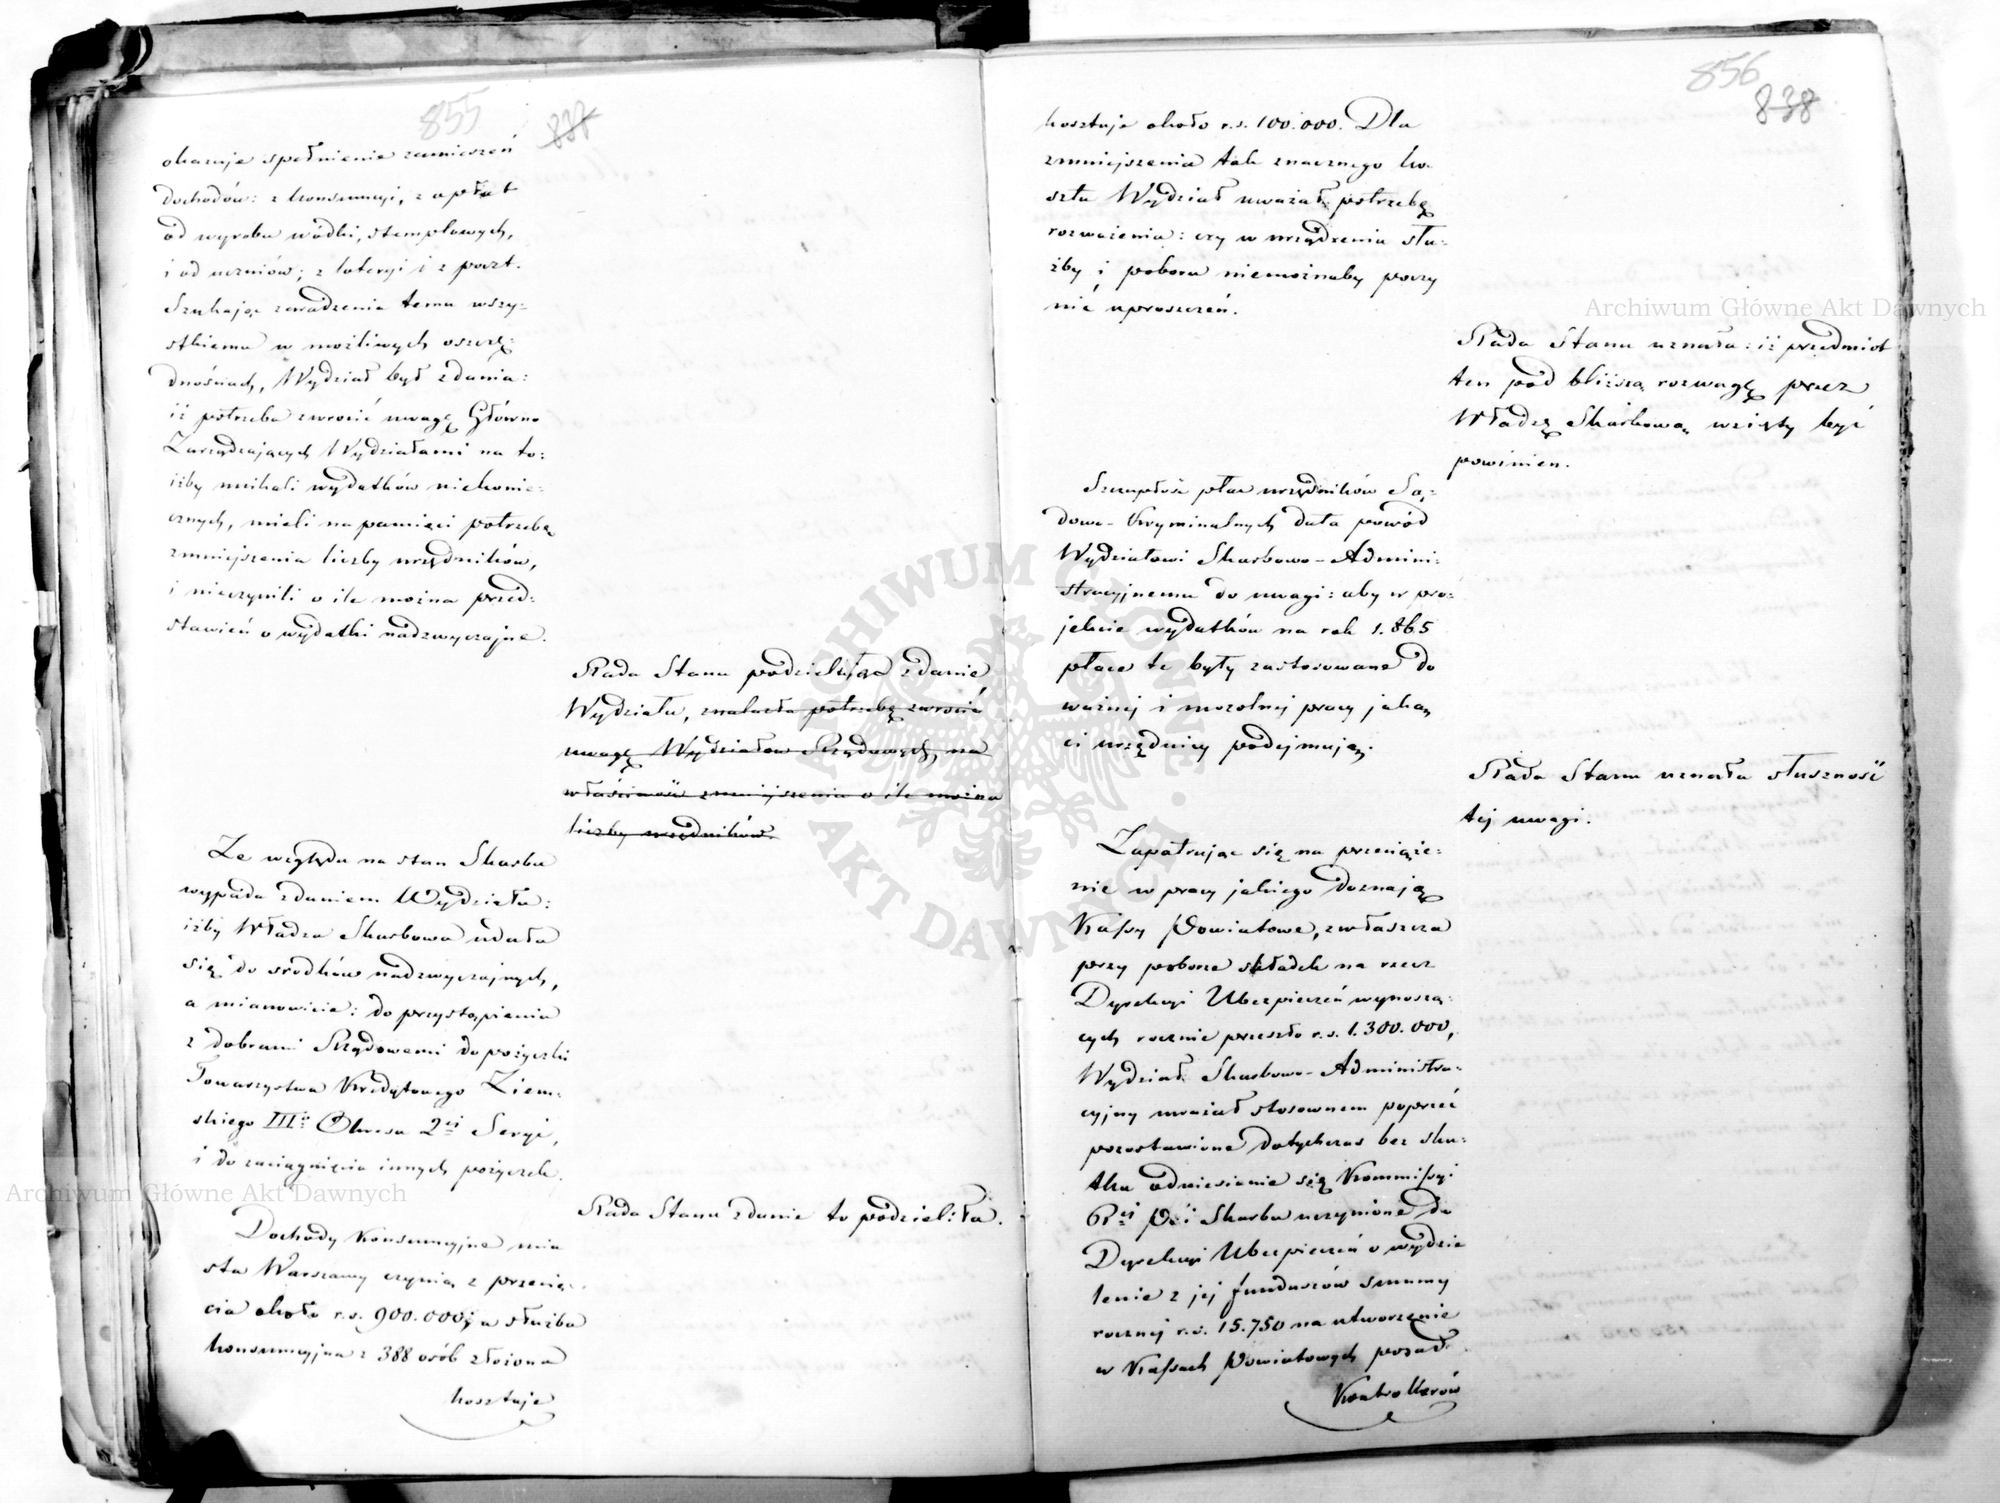 855
837
okazuje spełnienie zamierzeń
dochodów: z konsumcyi, z opłat
od wyrobu wódki, stemplowych,
i od uczniów; z loteryi i z poczt.
Szukając zaradzenia temu wszy-
stkiemu w możliwych oszczę-
dnościach, Wydział był zdania:
iż potrzeba zwrócić uwagę Główno
Zarządzających Wydziałami na to:
iżby unikali wydatków niekonie-
cznych, mieli na pamięci potrzebę
zmniejszenia liczby urzędników,
i nieczynili o ile można przed-
stawień o wydatki nadzwyczajne.
Rada Stanu podzielając zdanie
Wydziału, znalazła potrzebę zwrócić
uwagę Wydziałów Rządowych, na
właściwość zmniejszenia o ile można
liczby urzędników.
Ze względu na stan Skarbu
wypada zdaniem Wydziału:
iżby Władza Skarbowa udała
się do srodków nadzwyczajnych,
a mianowicie: do przystąpienia
z dobrami Rządowemi do pożyczki
Towarzystwa Kredytowego Ziem-
skiego IIIo Okresu 2ej Seryi,
i do zaciągnięcia innych pożyczek.
Rada Stanu zdanie to podzieliła.
Dochody Konsumcyjne mia
sta Warszawy czynią z przecię-
cia około r.s. 900.000; a służba
konsumcyjna z 388 osób złożona
kosztuje
856
838
kosztuje około r.s. 100.000. Dla
zmniejszenia tak znacznego ko-
sztu Wydział uważał potrzebę
rozważenia: czy w urządzeniu słu-
żby i poboru niemożnaby poczy
nić uproszczeń.
Rada Stanu uznała: iż przedmiot
ten pod bliższą rozwagę przez
Władzę Skarbową wzięty być
powinien.
Szczupłość płac urzędników Są-
dowo-Kryminalnych dała powód
Wydziałowi Skarbowo-Admini-
stracyjnemu do uwagi: aby w pro-
jekcie wydatków na rok 1.865
płace te były zastosowane do
ważnej i mozolnej pracy jaką
ci urzędnicy podejmują.
Rada Stanu uznała słuszność
tej uwagi.
Zapatrując się na przeciąże-
nie w pracy jakiego doznają
Kassy Powiatowe, zwłaszcza
przy poborze składek na rzecz
Dyrekcyi Ubezpieczeń wynoszą-
cych rocznie przeszło r.s. 1.300.000,
Wydział Skarbowo-Administra-
cyjny uważał stosownem poprzeć
pozostawione dotychczas bez sku-
tku odniesienie się Kommissyi
Rej Pi Skarbu uczynione do
Dyrekcyi Ubezpieczeń o wydzie
lenie z jej funduszów summy
rocznej r.s. 15.750 na utworzenie
w Kassach Powiatowych posad
Kontrollerów
Archiwum Główne Akt Dawnych
Archiwum Główne Akt Dawnych
ARCHIWUM GŁÓWNE
· AKT DAWNYCH ·